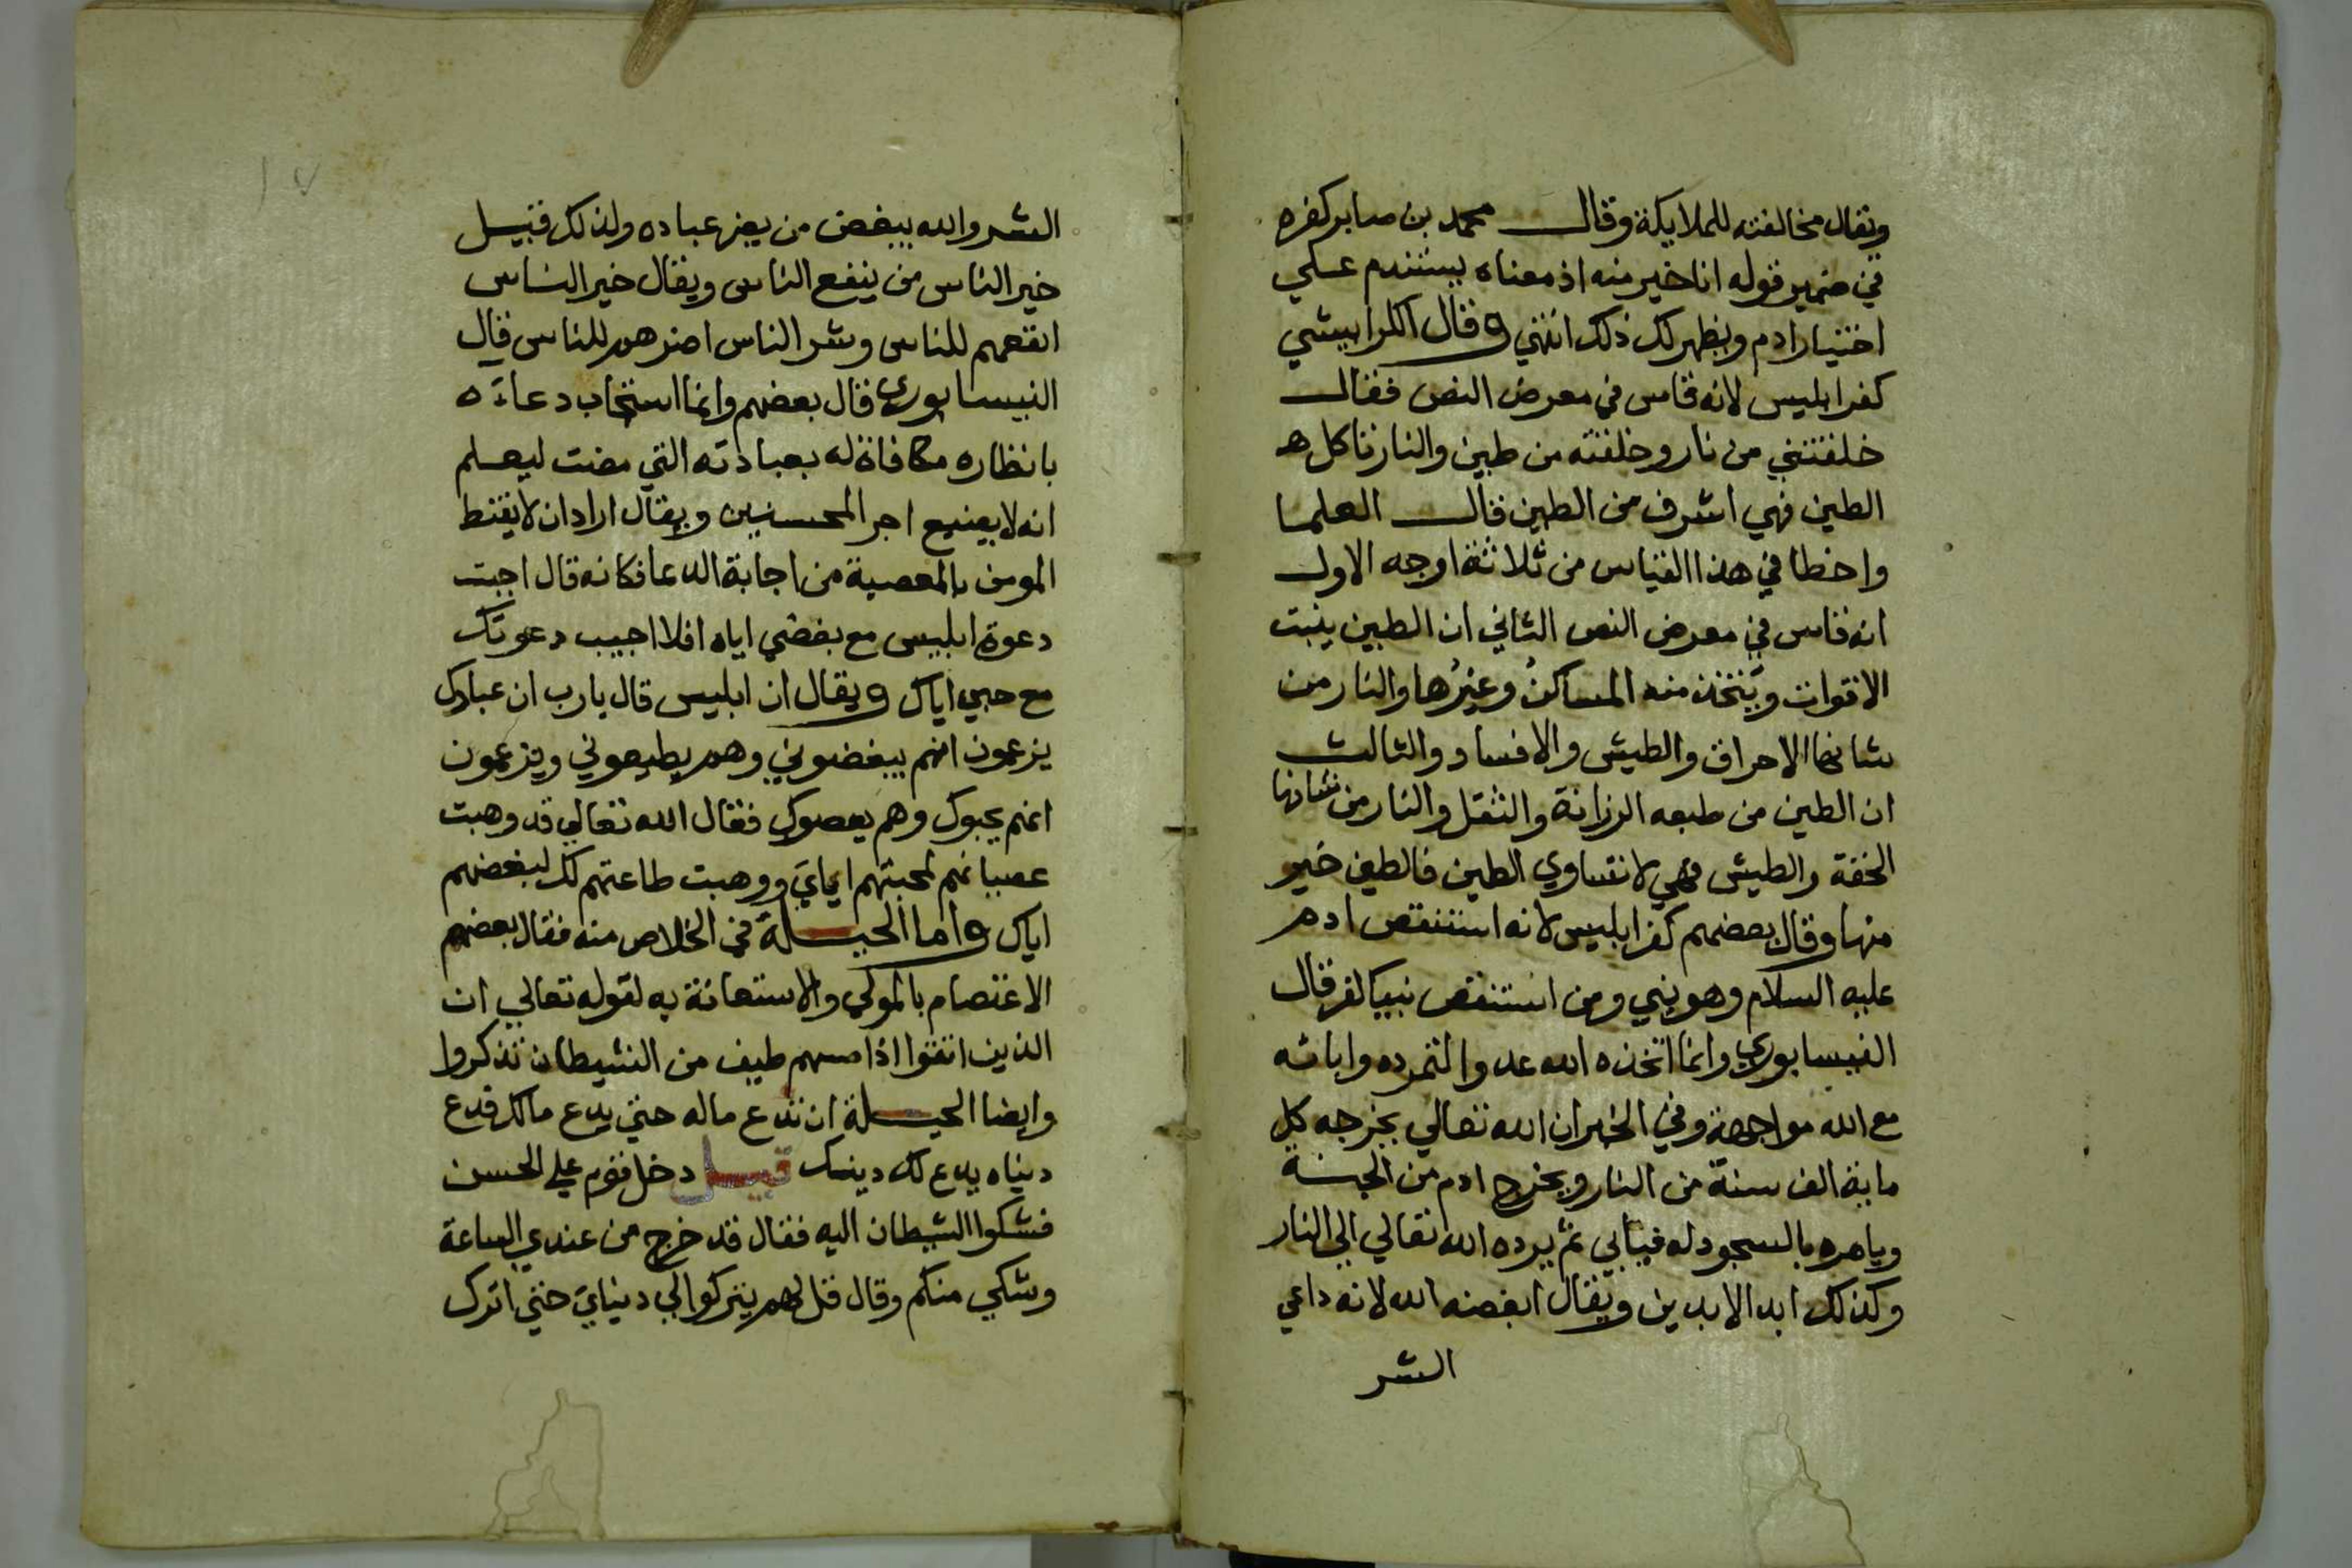 ويقال مخالفته للملايكة وقال محمد بن صابر كفره
في ضمير قوله انا خير منه اذ معناه يستندم علي
اختيار ادم ويظهر لك ذلك انتهي وقال الكرابيشي
كفر ابليس لانه قاس في معرض النص فقال
خلقتني من نار وخلقته من طين والنار تاكل
الطين فهي اشرف من الطين قال العلما
واخطا في هذا القياس من ثلاثة اوجه الاول
انه قاس في معرض النص الثاني ان الطين ينبت
الاقوات ويتخذ منه المساكن وغيرها والنار من
شانها الاحراق والطيش والافساد والثالث
ان الطين من طبعه الرزانة والثقل والنار من شانها
الخفة والطيش فهي لا تساوي الطين فالطين خير
منها وقال بعضهم كفر ابليس لانه استنقص ادم
عليه السلام وهو نبي ومن استنقص نبيا كفر قال
النيسابوري وانما اتخذه الله عدوا لتمرده واباته
مع الله مواجهة وفي الخبر ان الله تعالي يخرجه كل
ماية الف سنة من النار ويخرج ادم من الجنة
ويامره بالسجود له فيابي ثم يرده الله تعالي الي النار
وكذلك ابد الابدين ويقال ابغضه الله لانه داعي
الشر
الشر والله يبغض من يضر عباده ولذلك قيل
خير الناس من ينفع الناس ويقال خير الناس
انفعهم للناس وشر الناس اضرهم للناس قال
النيسابوري قال بعضهم وانما استجاب دعاءه
بانظاره مكافاة له بعبادته التي مضت ليعلم
انه لا يضيع اجر المحسنين ويقال اراد ان لا يقنط
المومن بالمعصية من اجابة الدعا فكانه قال اجبت
دعوة ابليس مع بغضي اياه افلا اجيب دعوتك
مع حبي اياك ويقال ان ابليس قال يا رب ان عبادك
يزعمون انهم يبغضوني وهم يطيعوني ويزعمون
انهم يحبوك وهم يعصوك فقال الله تعالي قد وهبت
عصيانهم لمحبتهم اياي ووهبت طاعتهم لك لبغضهم
اياك واما الحيلة في الخلاص منه فقال بعضهم
الاعتصام بالمولي والاستعانة به لقوله تعالي ان
الذين اتقوا اذا مسهم طيف من الشيطان تذكروا
وايضا الحيلة ان تدع ماله حتي يدع مالك فدع
دنياه يدع لك دينك قيل دخل قوم علي الحسن
فشكوا الشيطان اليه فقال قد خرج من عندي الساعة
وشكي منكم وقال قل لهم يتركوا لي دنياي حتي اترك